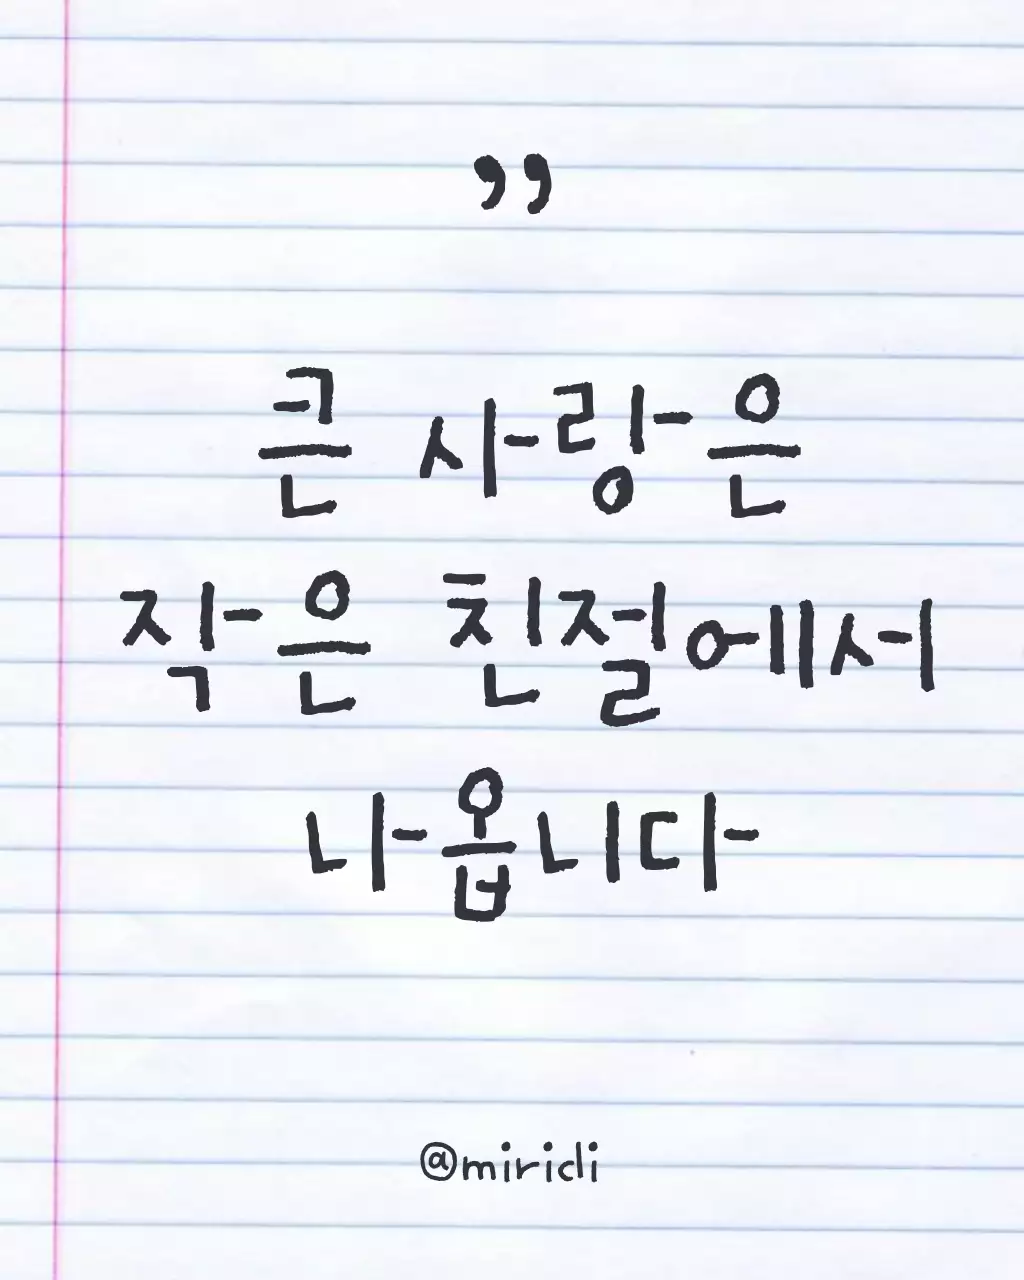 ”
큰 사랑은
작은 친절에서
나옵니다
@miricli